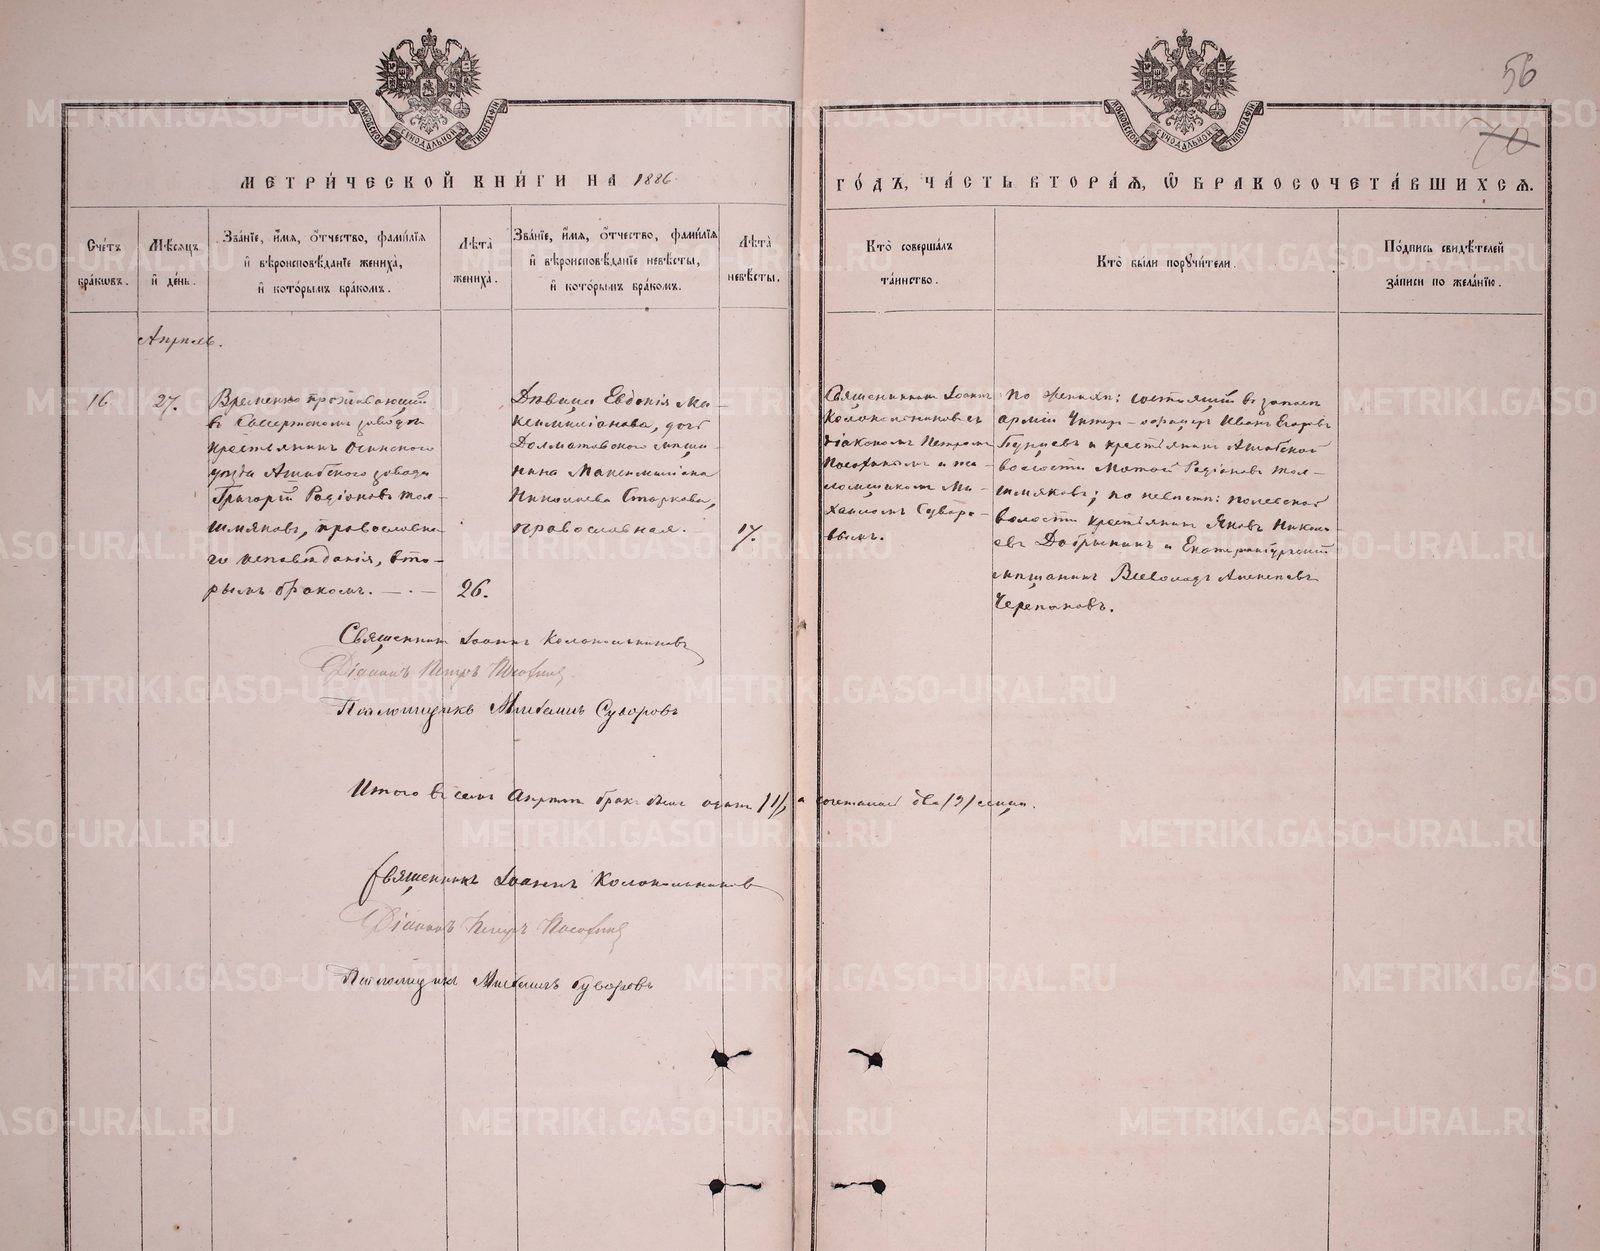 56
70
МОСКОВСКОЙ СѴНОДАЛЬНОЙ ТИПОГРАФІИ
МОСКОВСКОЙ СѴНОДАЛЬНОЙ ТИПОГРАФІИ
МЕТРИ́ЧЕСКОЙ КНИ́ГИ НА 1886
ГО́ДЪ, ЧА́СТЬ ВТОРА́Я, Ѡ БРАКОСОЧЕТА́ВШИХСЯ.
Сче́тъ бра́кѡвъ.
Мѣ́сѧцъ и҆ де́нь.
Зва́нїе, и҆́мѧ, ѻ҆́тчество, фами́лїѧ и҆ вѣроисповѣ́данїе жениха̀, и҆ кото́рымъ бра́комъ.
Лѣ́та жениха̀.
Зва́нїе, и҆́мѧ, ѻ҆́тчество, фами́лїѧ и҆ вѣроисповѣ́данїе невѣ́сты, и҆ кото́рымъ бра́комъ.
Лѣ́та невѣ́сты.
Кто̀ соверша́лъ та́инство.
Кто̀ бы́ли порꙋчи́тели.
По́дпись свидѣ́телей за́писи по жела́нїю.
Апрель.
16
27.
Временно проживающій
въ Сысертскомъ заводѣ
крестьянинъ Осинскаго
уѣзда Ашабского завода
Григорій Родіоновъ Тол-
шмяковъ, православна-
го исповѣданія, вто-
рымъ бракомъ.
26.
Дѣвица Евдокія Ма-
ксимиліанова, дочь
Долматовского мѣща-
нина Максимиліана
Николаева Старкова,
православная.
17.
Священникъ Іоаннъ
Колокольниковъ съ
діакономъ Петромъ
и пса-
ломщикомъ Ми-
хаиломъ Суворо-
вымъ.
По женихѣ: состоящій въ запасѣ
арміи Унтеръ-офицеръ Иванъ Егоровъ
и крестьянинъ Ашабской
волости Матѳей Родіоновъ Тол-
шмяковъ; по невѣстѣ: Полевской
волости крестьянинъ Яковъ Никола-
евъ Добрынинъ и Екатеринбургскій
мѣщанинъ Всеволодъ Алексѣевъ
Черепановъ.
Священникъ Іоаннъ Колокольниковъ
Діаконъ Петръ
Псаломщикъ Михаилъ Суворовъ
Итого въ семъ Апрѣлѣ бракъ былъ одинъ /1/, а сочеталось два /2/ лица.
Священникъ Іоаннъ Колокольниковъ
Діаконъ Петръ
Псаломщикъ Михаилъ Суворовъ
METRIKI.GASO-URAL.RU